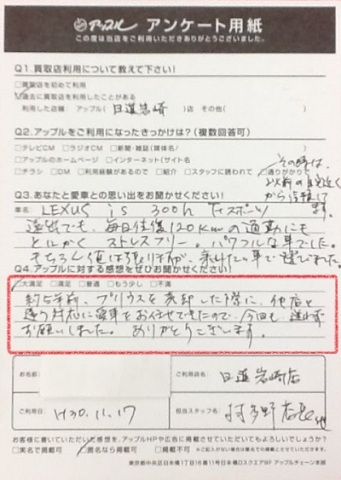 アップル アンケート用紙
この度は当店をご利用いただきありがとうございました。
Q1.買取店利用について教えて下さい!
□買取店を初めて利用
過去に買取店を利用したことがある
利用した店舗:アップル( 日進岩崎 )店 その他(
Q2.アップルをご利用になったきっかけは?(複数回答可)
□テレビCM □ラジオCM □新聞・雑誌(媒体名)
□アップルのホームページ □インターネット(サイト名
□チラシ □DM □利用経験があるので □紹介 □スタッフに誘われて 通りがかり
その時は、
Q3.あなたと愛車との思い出をお聞かせください!
車名 LEXUS is 300h Fスポーツ
遠出でも、毎日往復120Kmの通勤にも
とにかくストレスフリー。パワフルな車でした。
Q4.アップルに対する感想をぜひお聞かせください!
大満足 □満足 □普通 □もう少し □不満
約5年前、プリウスを売却した際に、他店と
違う対応に愛車をお任せできたので、今回も迷わず
お願いしました。ありがとうございます。
お名前
ご利用店名 日進岩崎店
ご利用日 H30.11.17
担当スタッフ名 波多野店長
お客様に書いていただいた感想を、アップルHPや広告に掲載させていただいてもよろしいでしょうか?
□実名で掲載可 匿名なら掲載可 □掲載不可